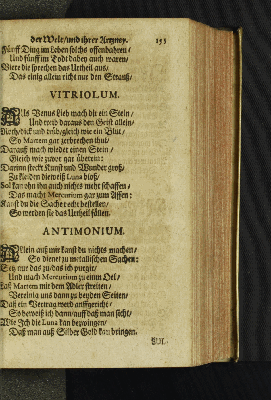 der Welt/und ihrer Artzney. 155
Fünff Ding im Leben solchs offenbahren/
Und fünff im Todt dabey auch waren/
Viere die sprechen das Urtheil aus/
Das einig allein nicht nur den Strauß/
VITRIOLUM.
Als Venus Lieb mach dir ein Stein/
Und treib daraus den Geist allein/
dick und trüb/gleich wie ein Blut/
So Martem gar zerbrechen thut/
Darauß mach wieder einen Stein/
Gleich wie zuvor gar überein:
Darinn steckt Kunst und Wunder groß/
Zu die dieweiß Luna bloß/
Sol kan ohn ihn auch nichts mehr schaffen/
Das macht Mercurium gar zum Affen:
Kanst du die Sache recht bestellen/
So werden sie das Urtheil fällen.
ANTIMONIUM.
Allein auß mir kanst du nichts machen/
So dienet zu metallischen Sachen:
Sey nur das zu/das ich purgir/
Und mach Mercurium zu einm Oel/
Laß Martem mit dem Adler streiten/
Vereinig uns dann zu beyden Seiten/
Daß ein Vertrag werd auffgericht/
So beweiß ich dann/auff daß man sicht/
Wie Ich die Luna kan bezwingen/
Daß man auß Silber Gold kan bringen.